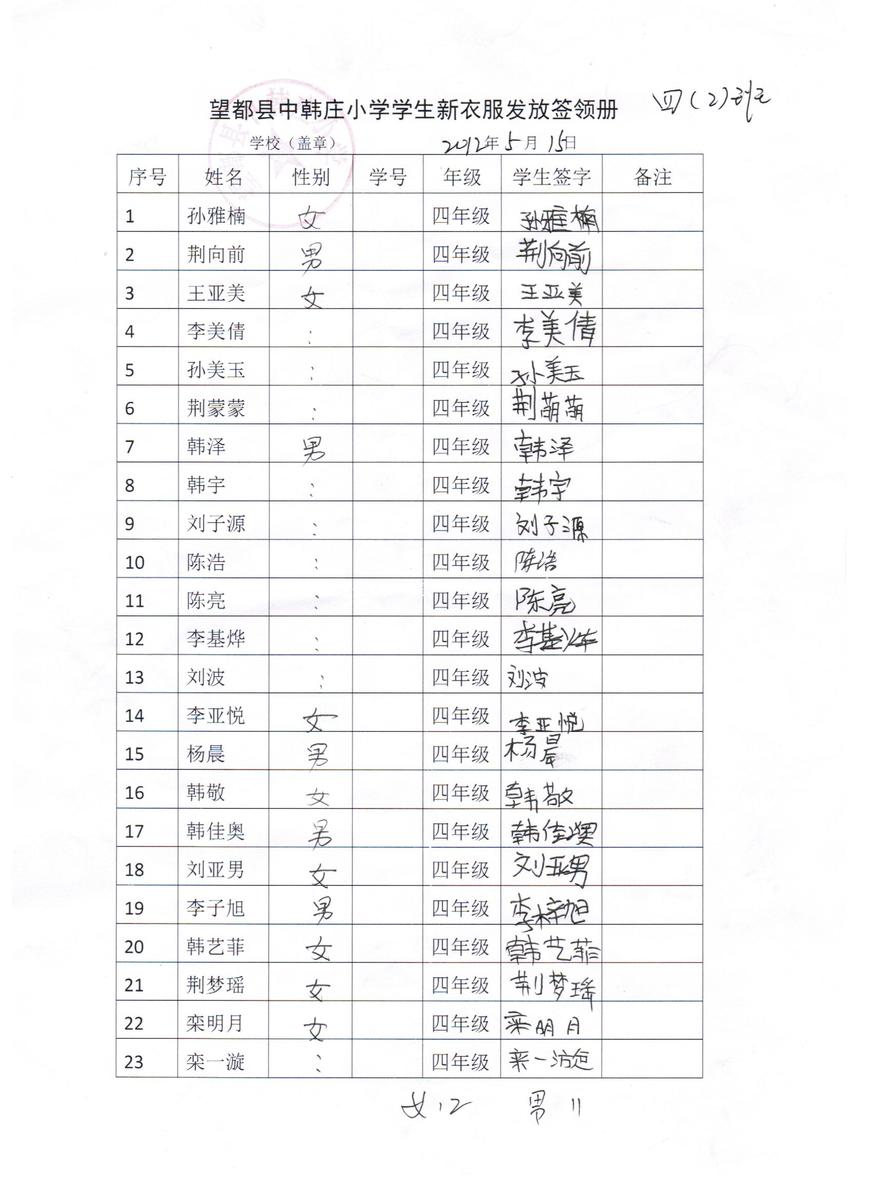 望都县中韩庄小学学生新衣服发放签领册 四(2)班
学校（盖章） 2012年5月15日
序号 姓名 性别 学号 年级 学生签字 备注
1 孙雅楠 女 四年级 孙雅楠
2 荆向前 男 四年级 荆向前
3 王亚美 女 四年级 王亚美
4 李美倩 : 四年级 李美倩
5 孙美玉 : 四年级 孙美玉
6 荆蒙蒙 : 四年级 荆萌萌
7 韩泽 男 四年级 韩泽
8 韩宇 : 四年级 韩宇
9 刘子源 : 四年级 刘子源
10 陈浩 : 四年级 陈浩
11 陈亮 : 四年级 陈亮
12 李基烨 : 四年级 李基烨
13 刘波 : 四年级 刘波
14 李亚悦 女 四年级 李亚悦
15 杨晨 男 四年级 杨晨
16 韩敬 女 四年级 韩敬
17 韩佳奥 男 四年级 韩佳澳
18 刘亚男 女 四年级 刘亚男
19 李子旭 男 四年级 李梓旭
20 韩艺菲 女 四年级 韩艺菲
21 荆梦瑶 女 四年级 荆梦瑶
22 栾明月 女 四年级 栾明月
23 栾一漩 : 四年级
女12 男11